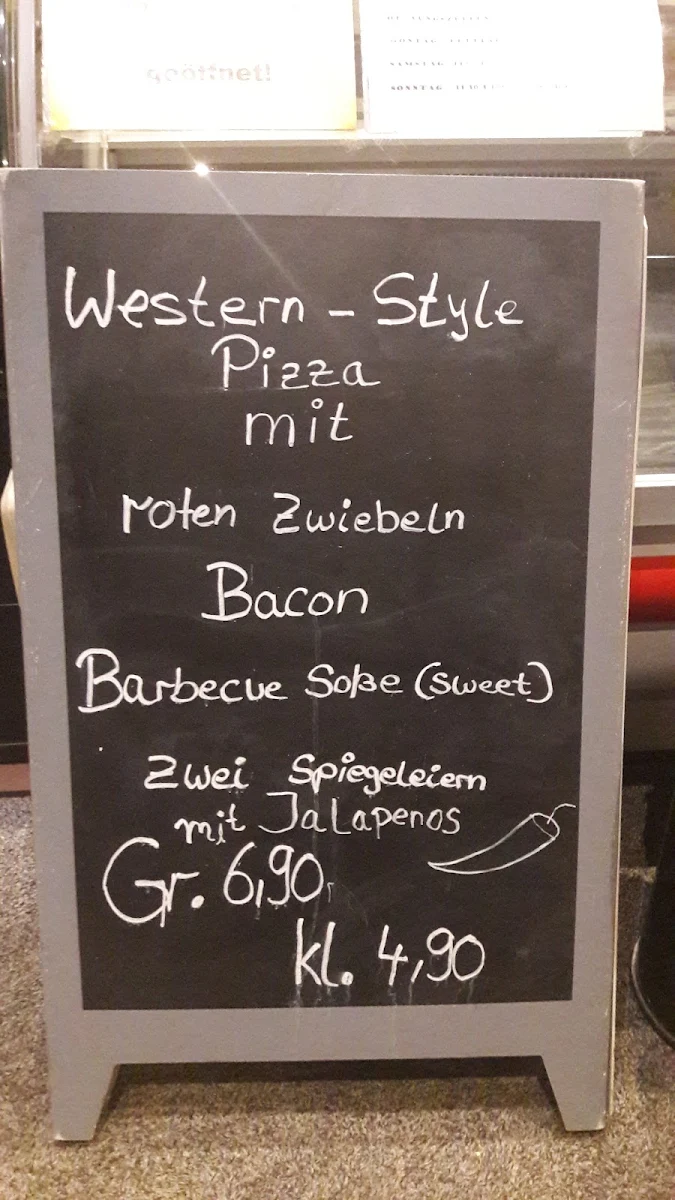 geöffnet!
SAMSTAG
SONNTAG
Western - Style
Pizza
mit
roten Zwiebeln
Bacon
Barbecue Soße (sweet)
Zwei Spiegeleiern
mit Jalapenos
Gr. 6,90
kl. 4,90